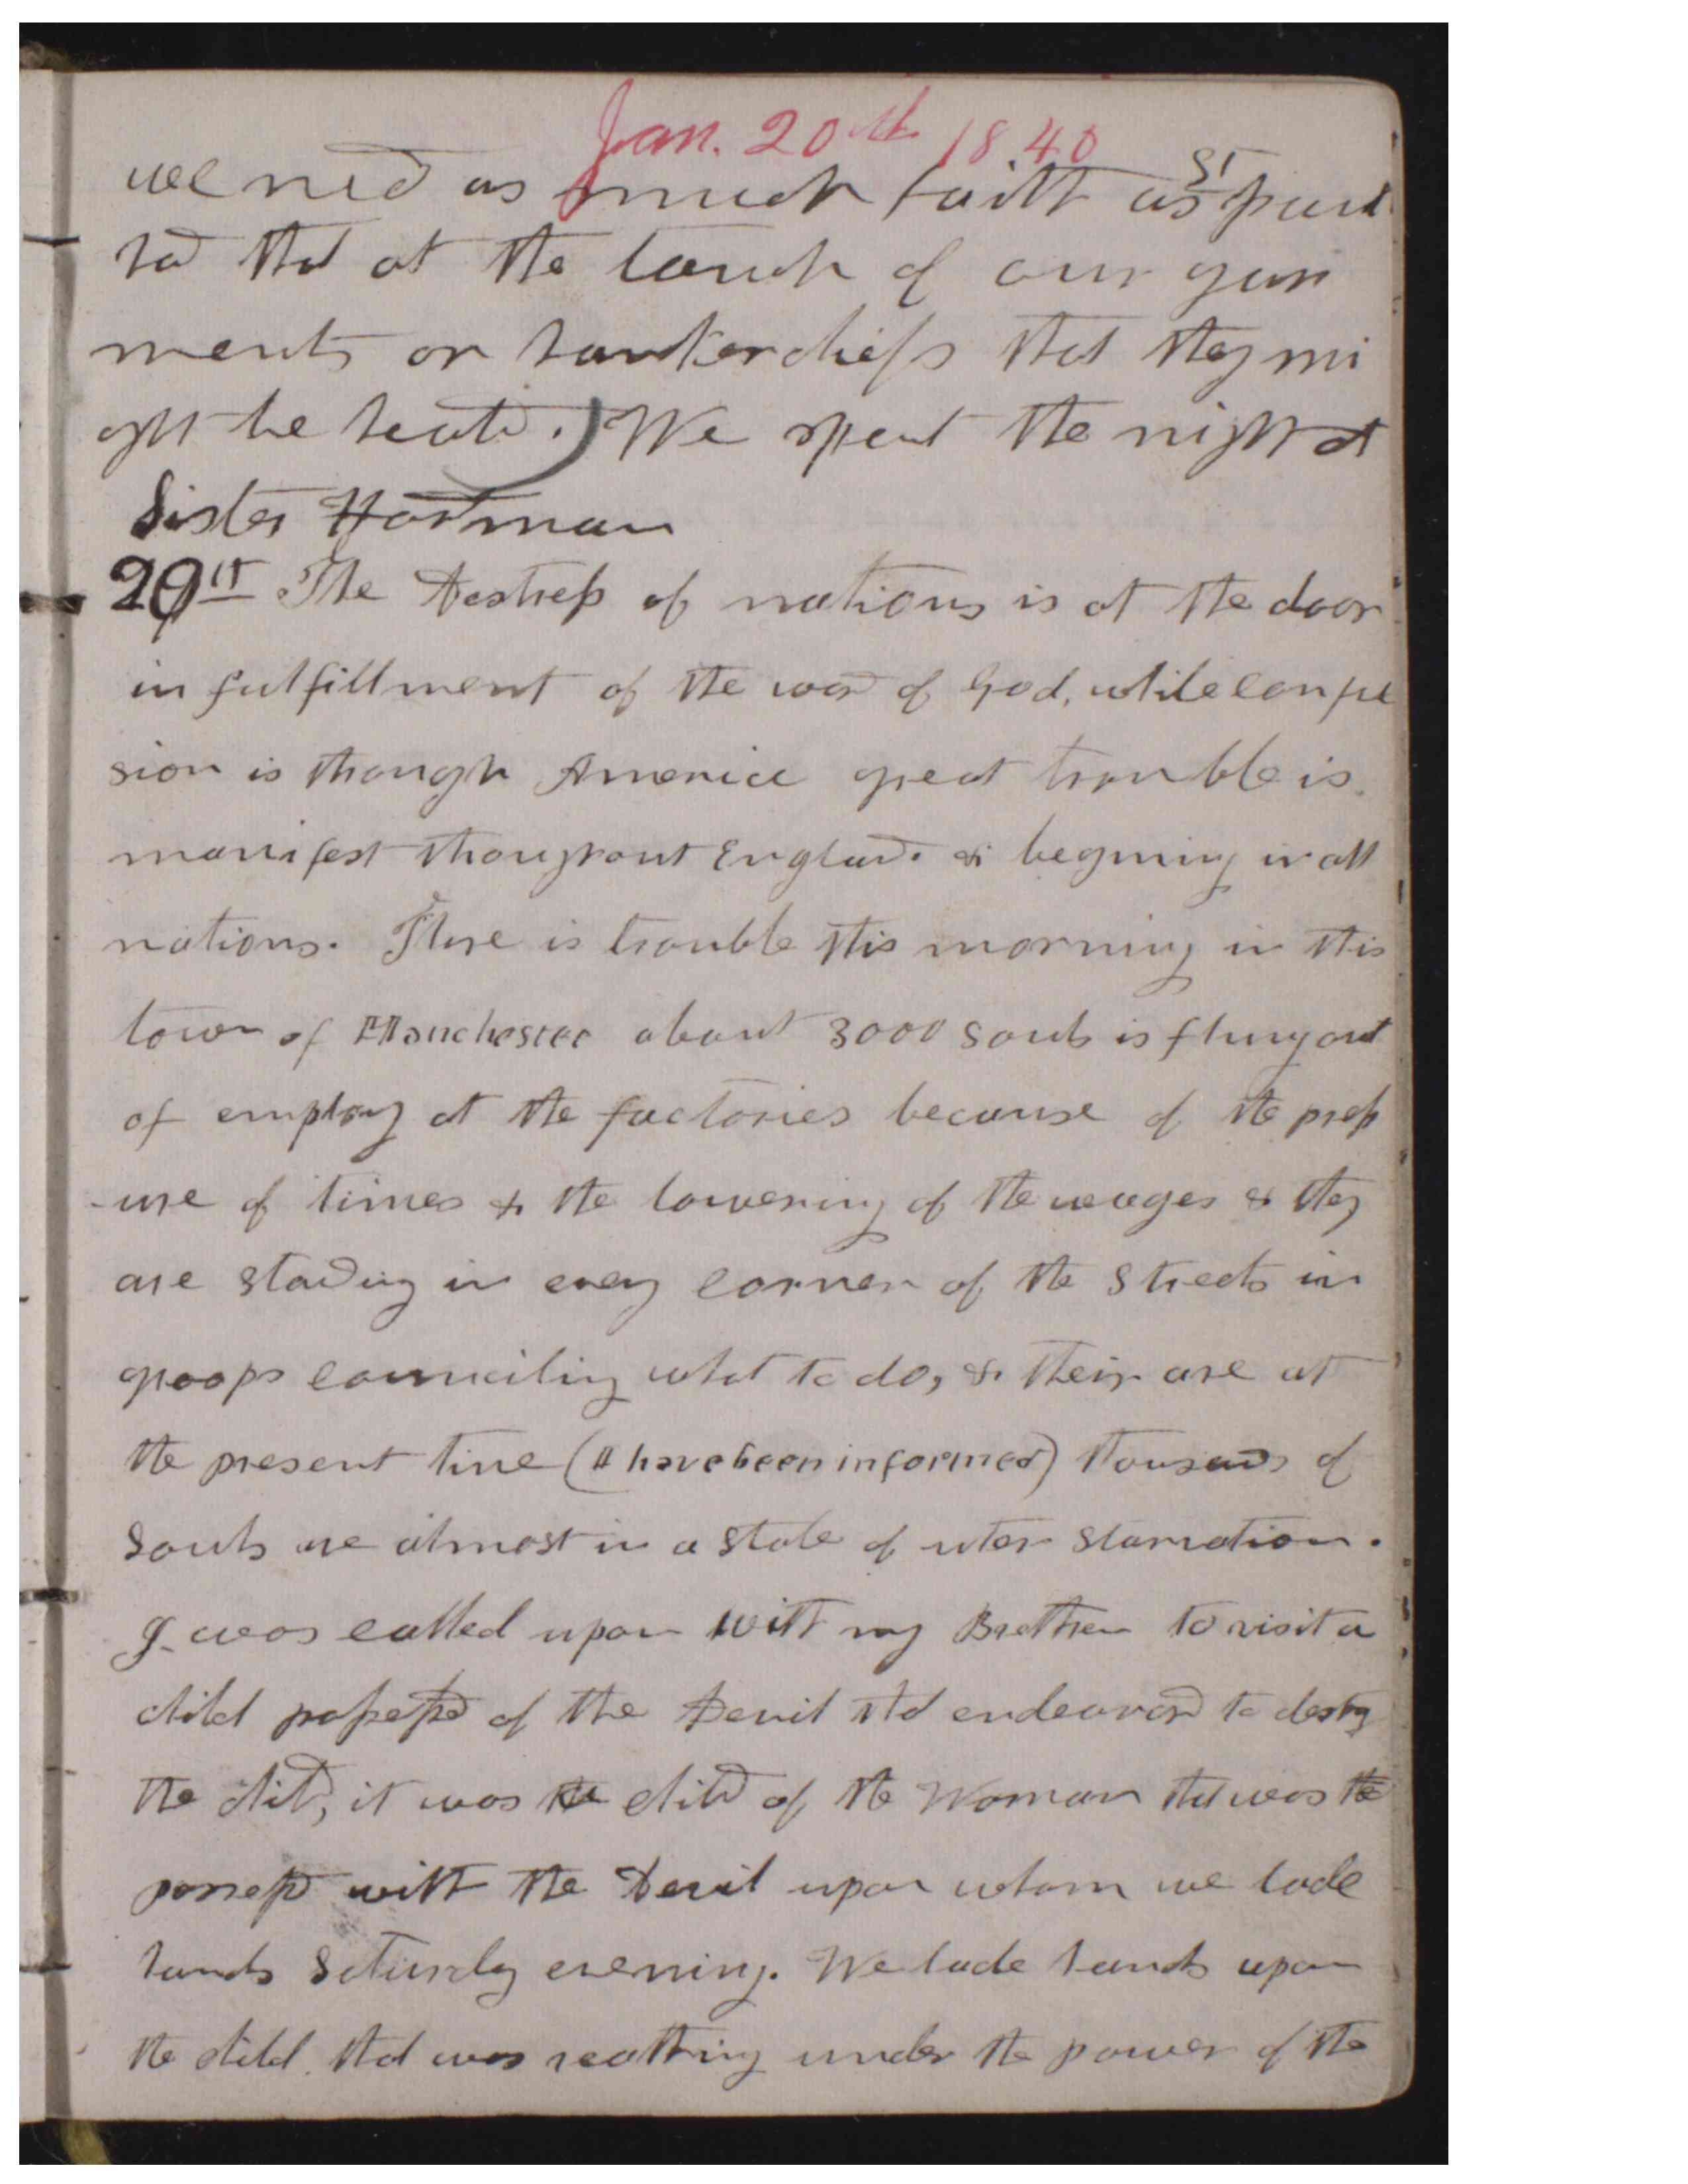 Jan. 20th 1840
we need as much faith as St paul
had that at the touch of our gar
ments or hankerchiefs that they mi
ght be heald.) We spent the night at
Sister Hardman
20th The Destress of nations is at the door
in fulfillment of the word of God, while confu
sion is though America great trouble is
manifest thoughout England. & begining in all
nations. There is trouble this morning in this
town of Manchester about 3000 souls is flung out
of employ at the factories because of the press
-ure of times & the lowering of the wages & they
are standing in evry corner of the streets in
groops counciling what to do, & their are at
the present time (I have been informed) thousands of
souls are almost in a state of utter starvation.
I was called upon with my Brethren to visit a
child possessed of the Devil that endeavored to destroy
the child, it was the child of the Woman that was the
possessd with the Devil upon whom we lade
hands Saturday evening. We lade hands upon
the child that was reathing under the power of the